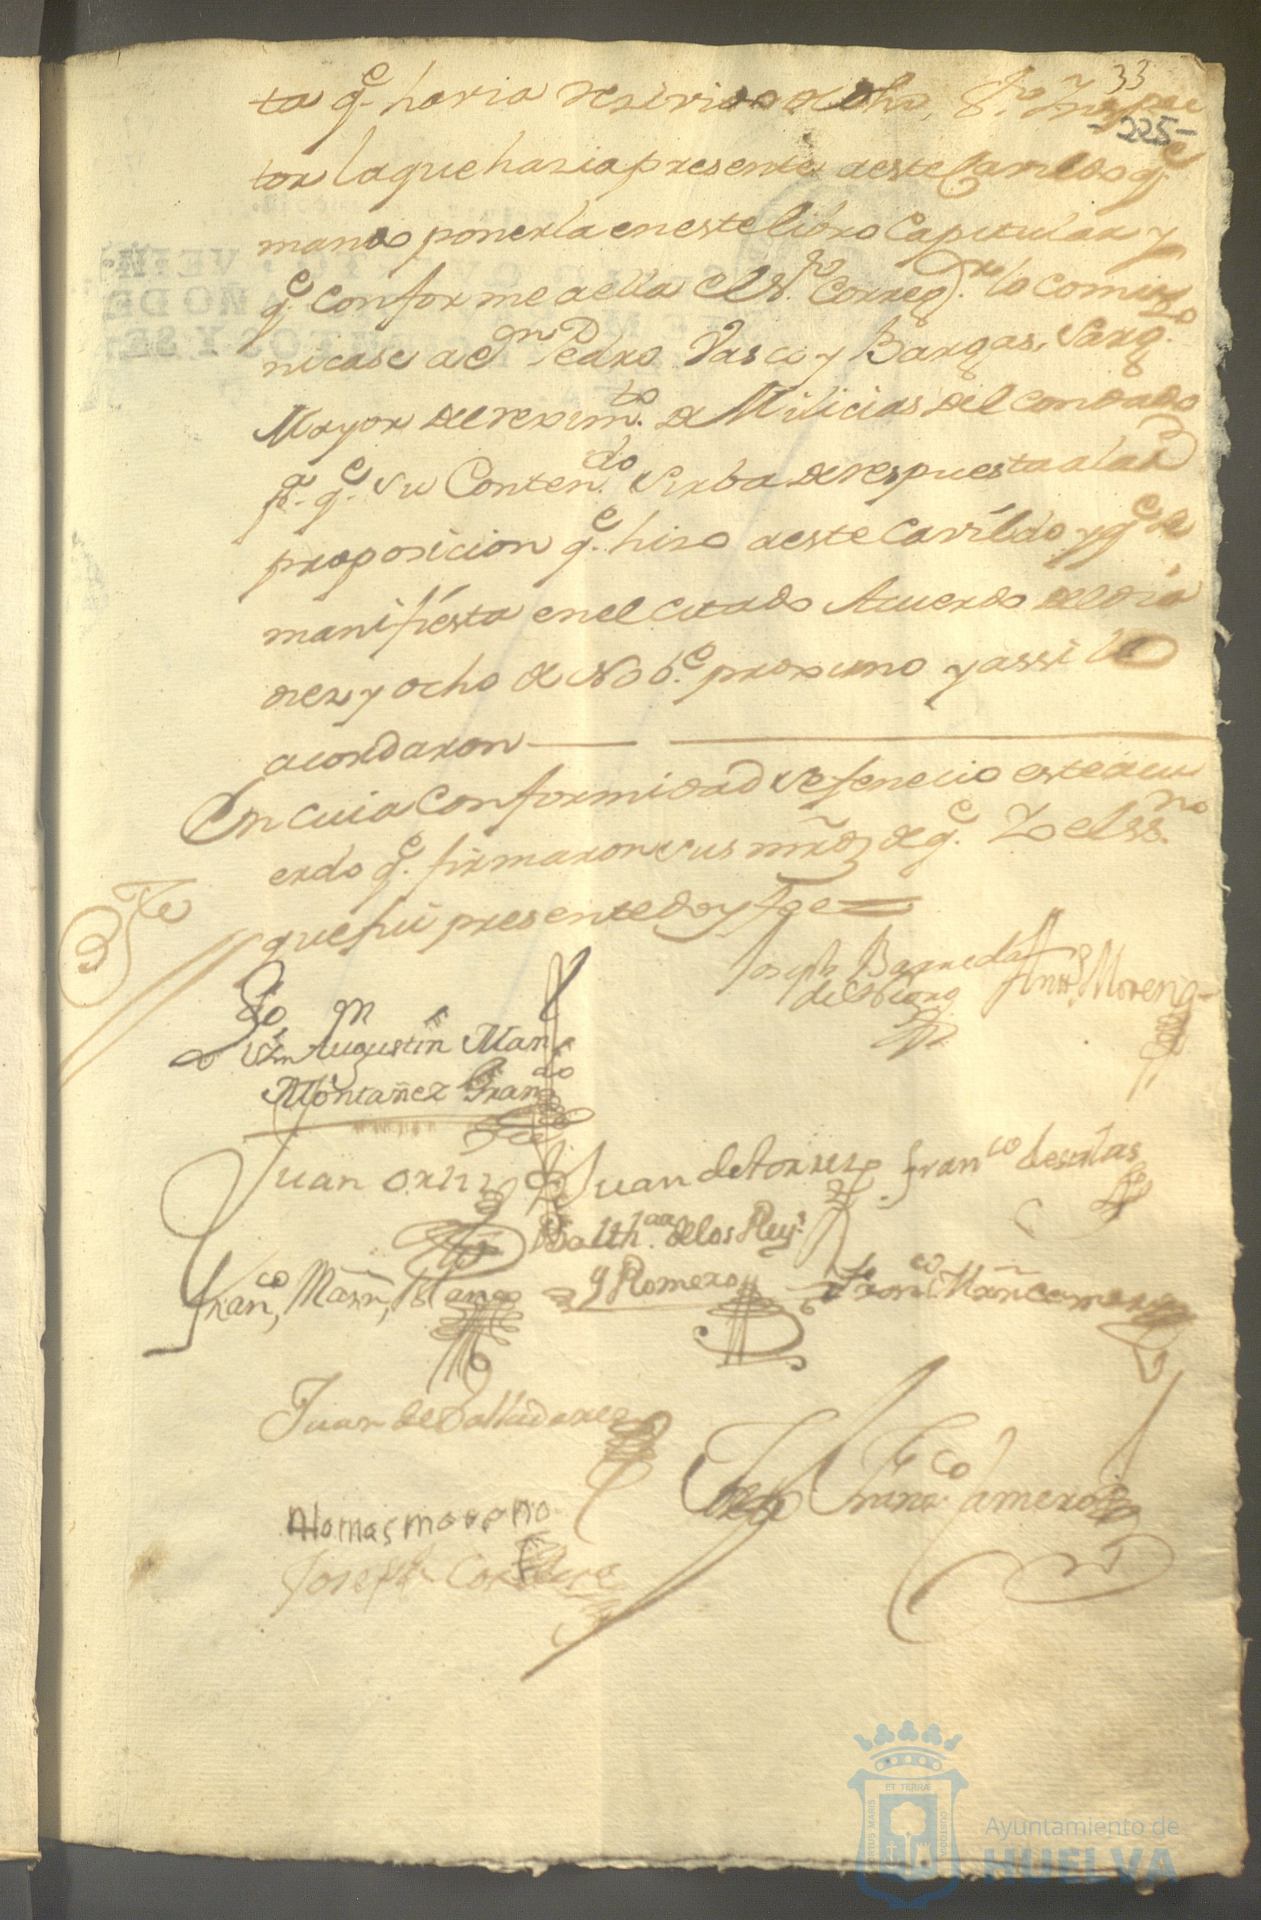 33
-225-
ta q.e havia rezivido de dho. S.or Inspec
tor la que hasia presente a este Cavildo q.e
mando ponerla en este libro Capitular y
q.e conforme a ella el S.or Correg.or lo comu
nicase a dn Pedro Vasco y Bargas, Sarg.to
Mayor del rexim.to de Milicias del condado
p.a q.e su Conten.do sirba de respuesta a la
proposicion q.e hiso a este Cavildo y q.e se
manifiesta en el citado Acuerdo del dia
diez y ocho de Nob.e proximo y assi lo
acordaron
En cuia Conformidad se fenecio este acu
erdo q.e firmaron sus mrds de q.e Yo el ss.no
que fui presente doy fee
Joseph Barreda
Antt.o Moreno
Augustin Man.
Montañez
Juan Ortiz
Juan de Torres
Fran.co de salas
Balth.ar de los Reys
y Romero
Fran.co Mārn, Blanco
Juan de Valladares
Fran.co Camero
Alonso moreno
Joseph Cordero
ET TERRÆ
PORTUS MARIS
CUSTODIA
Ayuntamiento de
HUELVA